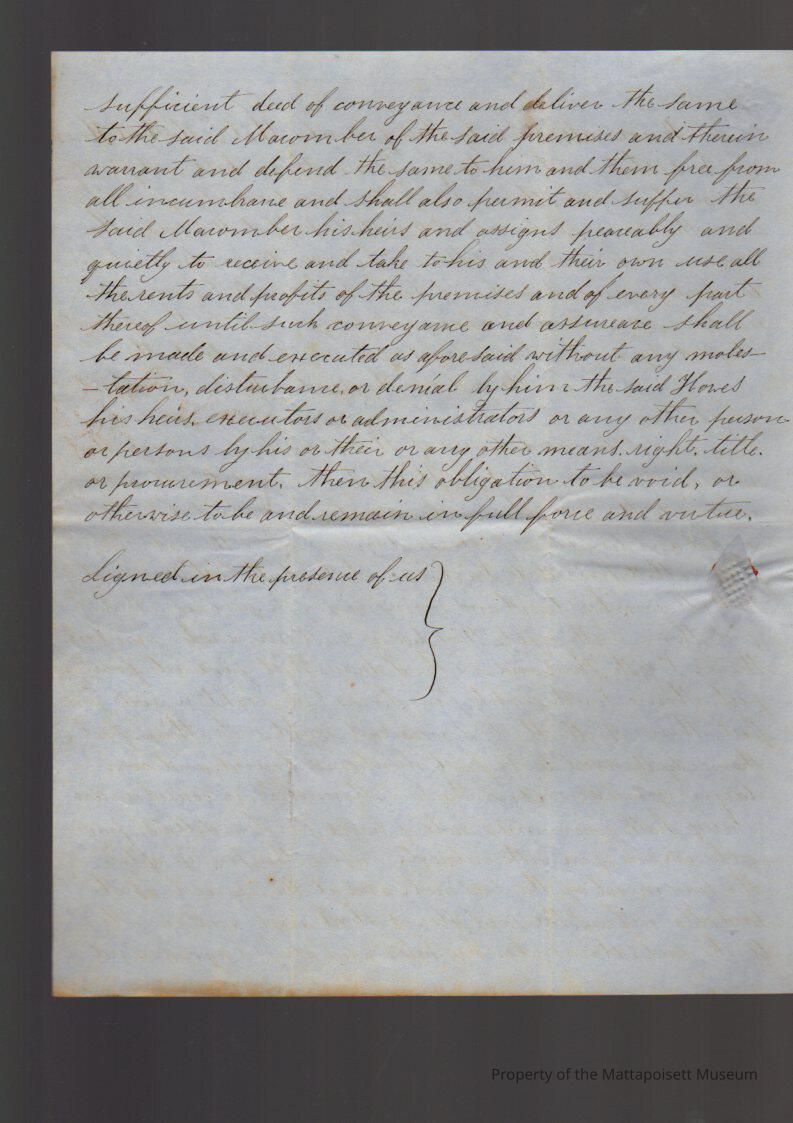 sufficient deed of conveyance and deliver the same
to the said Macomber of the said premises and therein
warrant and defend the same to him and them free from
all incumbrane and shall also permit and suffer the
said Macomber his heirs and assigns peaceably and
quietly to receive and take to his and their own use all
the rents and profits of the premises and of every part
thereof until such conveyance and assureace shall
be made and executed as aforesaid without any moles-
-tation, disturbance, or denial by him the said Howes
his heirs, executors or administrators or any other person
or persons by his or their or any other means, right, title,
or procurement, then this obligation to be void, or
otherwise to be and remain in full force and virtue.
Signed in the presence of us
Property of the Mattapoisett Museum